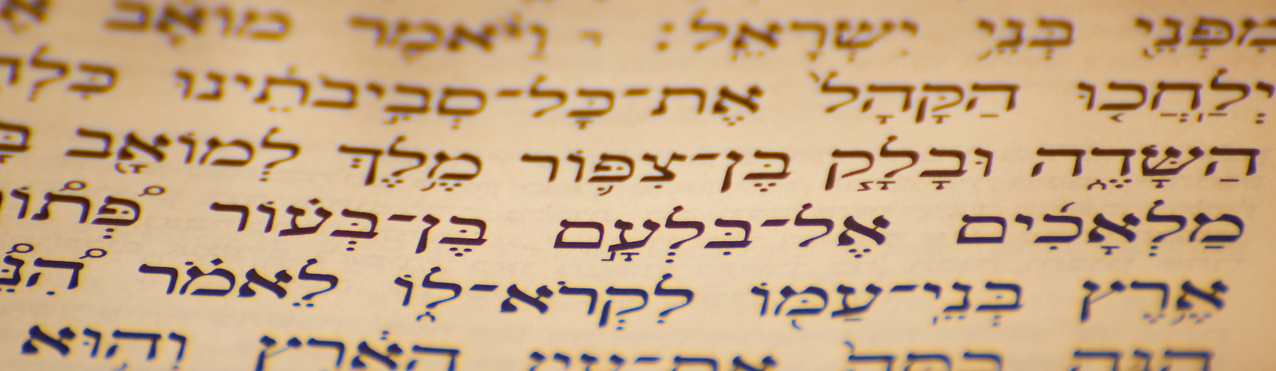 מִפְּנֵ֖י בְּנֵ֥י יִשְׂרָאֵֽל׃ וַיֹּ֨אמֶר מוֹאָ֜ב
יְלַחֲכ֤וּ הַקָּהָל֙ אֶת־כָּל־סְבִ֣יבֹתֵ֔ינוּ
הַשָּׂדֶ֑ה וּבָלָ֧ק בֶּן־צִפּ֛וֹר מֶ֥לֶךְ לְמוֹאָ֖ב
מַלְאָכִ֜ים אֶל־בִּלְעָ֣ם בֶּן־בְּעֹ֗ור
אֶ֥רֶץ בְּנֵי־עַמּ֖וֹ לִקְרֹא־ל֑וֹ לֵאמֹ֗ר
הִנֵּ֤ה כִסָּה֙ אֶת־עֵ֣ין הָאָ֔רֶץ וְה֥וּא